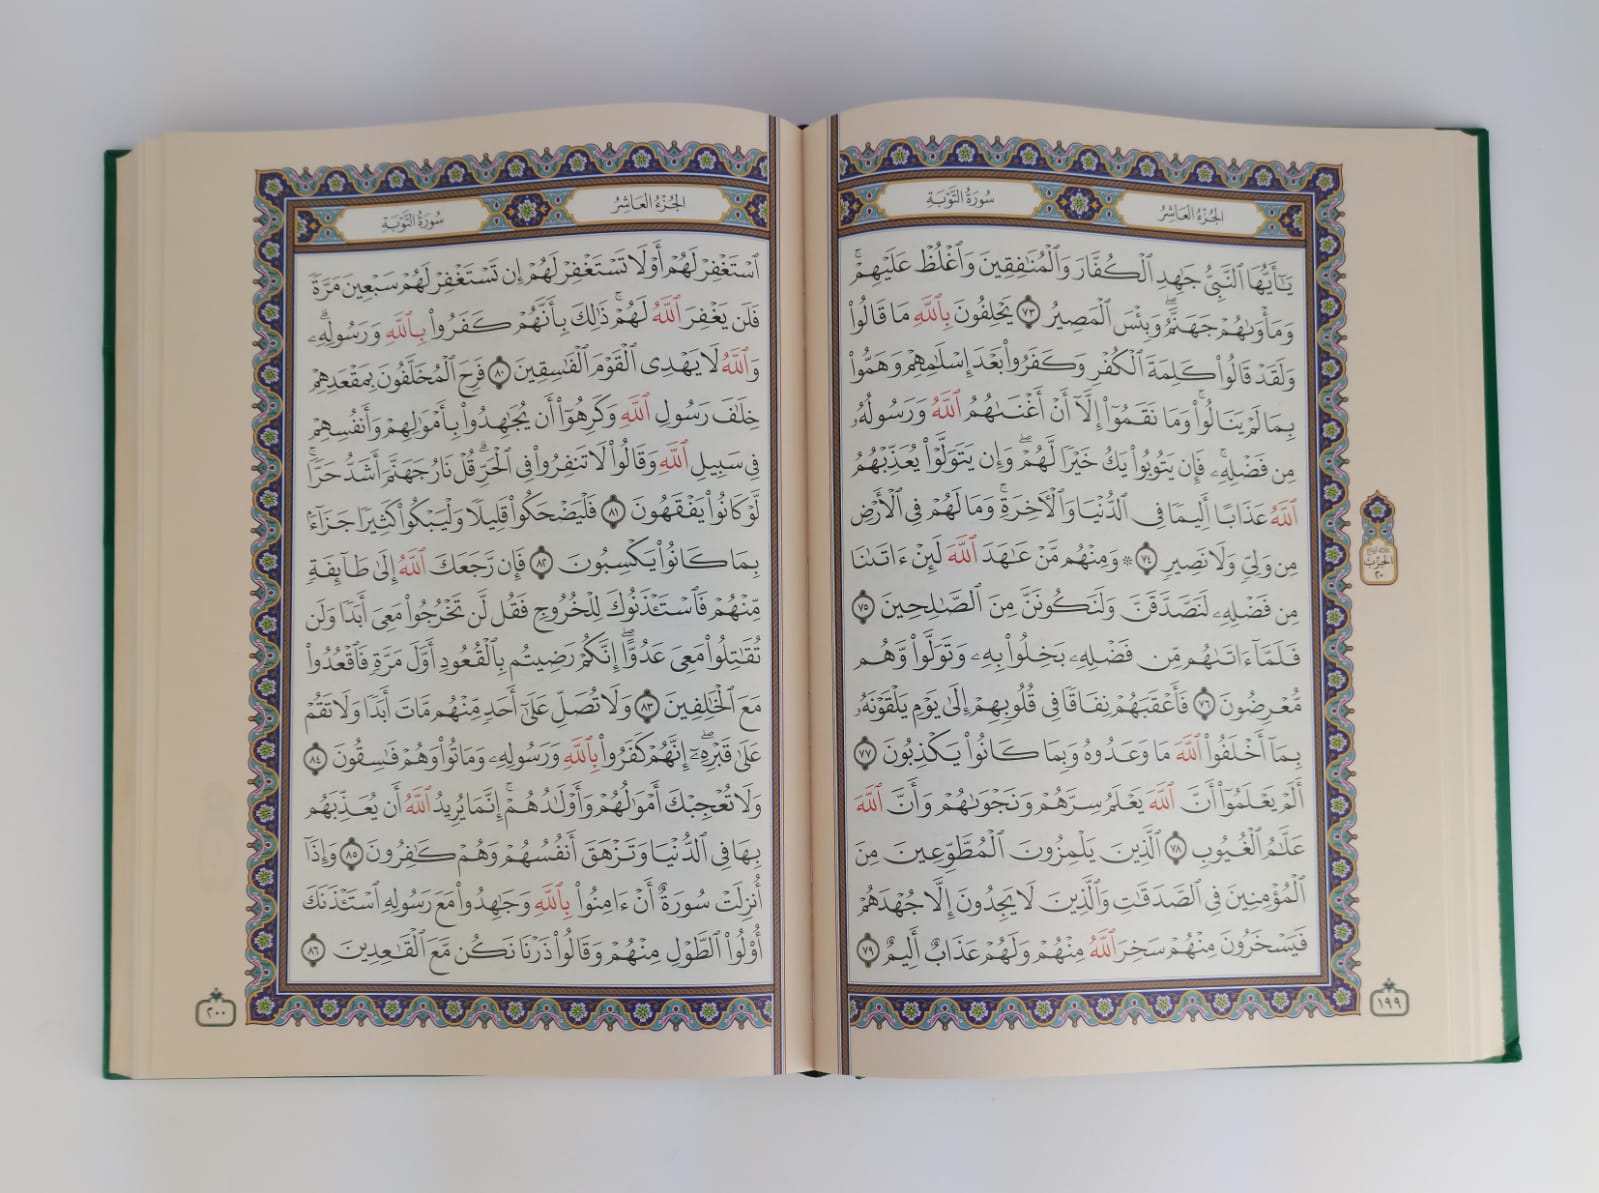 الجزء العاشر
سورة التوبة
يَٰٓأَيُّهَا ٱلنَّبِىُّ جَٰهِدِ ٱلْكُفَّارَ وَٱلْمُنَٰفِقِينَ وَٱغْلُظْ عَلَيْهِمْ ۚ
وَمَأْوَىٰهُمْ جَهَنَّمُ ۖ وَبِئْسَ ٱلْمَصِيرُ ٧٣ يَحْلِفُونَ بِٱللَّهِ مَا قَالُوا۟
وَلَقَدْ قَالُوا۟ كَلِمَةَ ٱلْكُفْرِ وَكَفَرُوا۟ بَعْدَ إِسْلَٰمِهِمْ وَهَمُّوا۟
بِمَا لَمْ يَنَالُوا۟ ۚ وَمَا نَقَمُوٓا۟ إِلَّآ أَنْ أَغْنَىٰهُمُ ٱللَّهُ وَرَسُولُهُۥ
مِن فَضْلِهِۦ ۚ فَإِن يَتُوبُوا۟ يَكُ خَيْرًا لَّهُمْ ۖ وَإِن يَتَوَلَّوْا۟ يُعَذِّبْهُمُ
ٱللَّهُ عَذَابًا أَلِيمًا فِى ٱلدُّنْيَا وَٱلْءَاخِرَةِ ۚ وَمَا لَهُمْ فِى ٱلْأَرْضِ
مِن وَلِىٍّ وَلَا نَصِيرٍ ٧٤ ۞ وَمِنْهُم مَّنْ عَٰهَدَ ٱللَّهَ لَئِنْ ءَاتَىٰنَا
مِن فَضْلِهِۦ لَنَصَّدَّقَنَّ وَلَنَكُونَنَّ مِنَ ٱلصَّٰلِحِينَ ٧٥
فَلَمَّآ ءَاتَىٰهُم مِّن فَضْلِهِۦ بَخِلُوا۟ بِهِۦ وَتَوَلَّوا۟ وَّهُم
مُّعْرِضُونَ ٧٦ فَأَعْقَبَهُمْ نِفَاقًا فِى قُلُوبِهِمْ إِلَىٰ يَوْمِ يَلْقَوْنَهُۥ
بِمَآ أَخْلَفُوا۟ ٱللَّهَ مَا وَعَدُوهُ وَبِمَا كَانُوا۟ يَكْذِبُونَ ٧٧
أَلَمْ يَعْلَمُوٓا۟ أَنَّ ٱللَّهَ يَعْلَمُ سِرَّهُمْ وَنَجْوَىٰهُمْ وَأَنَّ ٱللَّهَ
عَلَّٰمُ ٱلْغُيُوبِ ٧٨ ٱلَّذِينَ يَلْمِزُونَ ٱلْمُطَّوِّعِينَ مِنَ
ٱلْمُؤْمِنِينَ فِى ٱلصَّدَقَٰتِ وَٱلَّذِينَ لَا يَجِدُونَ إِلَّا جُهْدَهُمْ
فَيَسْخَرُونَ مِنْهُمْ سَخِرَ ٱللَّهُ مِنْهُمْ وَلَهُمْ عَذَابٌ أَلِيمٌ ٧٩
الحزب
٢٠
١٩٩
الجزء العاشر
سورة التوبة
ٱسْتَغْفِرْ لَهُمْ أَوْ لَا تَسْتَغْفِرْ لَهُمْ إِن تَسْتَغْفِرْ لَهُمْ سَبْعِينَ مَرَّةً
فَلَن يَغْفِرَ ٱللَّهُ لَهُمْ ۚ ذَٰلِكَ بِأَنَّهُمْ كَفَرُوا۟ بِٱللَّهِ وَرَسُولِهِۦ ۗ
وَٱللَّهُ لَا يَهْدِى ٱلْقَوْمَ ٱلْفَٰسِقِينَ ٨٠ فَرِحَ ٱلْمُخَلَّفُونَ بِمَقْعَدِهِمْ
خِلَٰفَ رَسُولِ ٱللَّهِ وَكَرِهُوٓا۟ أَن يُجَٰهِدُوا۟ بِأَمْوَٰلِهِمْ وَأَنفُسِهِمْ
فِى سَبِيلِ ٱللَّهِ وَقَالُوا۟ لَا تَنفِرُوا۟ فِى ٱلْحَرِّ ۗ قُلْ نَارُ جَهَنَّمَ أَشَدُّ حَرًّا ۚ
لَّوْ كَانُوا۟ يَفْقَهُونَ ٨١ فَلْيَضْحَكُوا۟ قَلِيلًا وَلْيَبْكُوا۟ كَثِيرًا جَزَآءًۢ
بِمَا كَانُوا۟ يَكْسِبُونَ ٨٢ فَإِن رَّجَعَكَ ٱللَّهُ إِلَىٰ طَآئِفَةٍ
مِّنْهُمْ فَٱسْتَـْٔذَنُوكَ لِلْخُرُوجِ فَقُل لَّن تَخْرُجُوا۟ مَعِىَ أَبَدًا وَلَن
تُقَٰتِلُوا۟ مَعِىَ عَدُوًّا ۖ إِنَّكُمْ رَضِيتُم بِٱلْقُعُودِ أَوَّلَ مَرَّةٍ فَٱقْعُدُوا۟
مَعَ ٱلْخَٰلِفِينَ ٨٣ وَلَا تُصَلِّ عَلَىٰٓ أَحَدٍ مِّنْهُم مَّاتَ أَبَدًا وَلَا تَقُمْ
عَلَىٰ قَبْرِهِۦٓ ۖ إِنَّهُمْ كَفَرُوا۟ بِٱللَّهِ وَرَسُولِهِۦ وَمَاتُوا۟ وَهُمْ فَٰسِقُونَ ٨٤
وَلَا تُعْجِبْكَ أَمْوَٰلُهُمْ وَأَوْلَٰدُهُمْ ۚ إِنَّمَا يُرِيدُ ٱللَّهُ أَن يُعَذِّبَهُم
بِهَا فِى ٱلدُّنْيَا وَتَزْهَقَ أَنفُسُهُمْ وَهُمْ كَٰفِرُونَ ٨٥ وَإِذَآ
أُنزِلَتْ سُورَةٌ أَنْ ءَامِنُوا۟ بِٱللَّهِ وَجَٰهِدُوا۟ مَعَ رَسُولِهِ ٱسْتَـْٔذَنَكَ
أُو۟لُوا۟ ٱلطَّوْلِ مِنْهُمْ وَقَالُوا۟ ذَرْنَا نَكُن مَّعَ ٱلْقَٰعِدِينَ ٨٦
٢٠٠